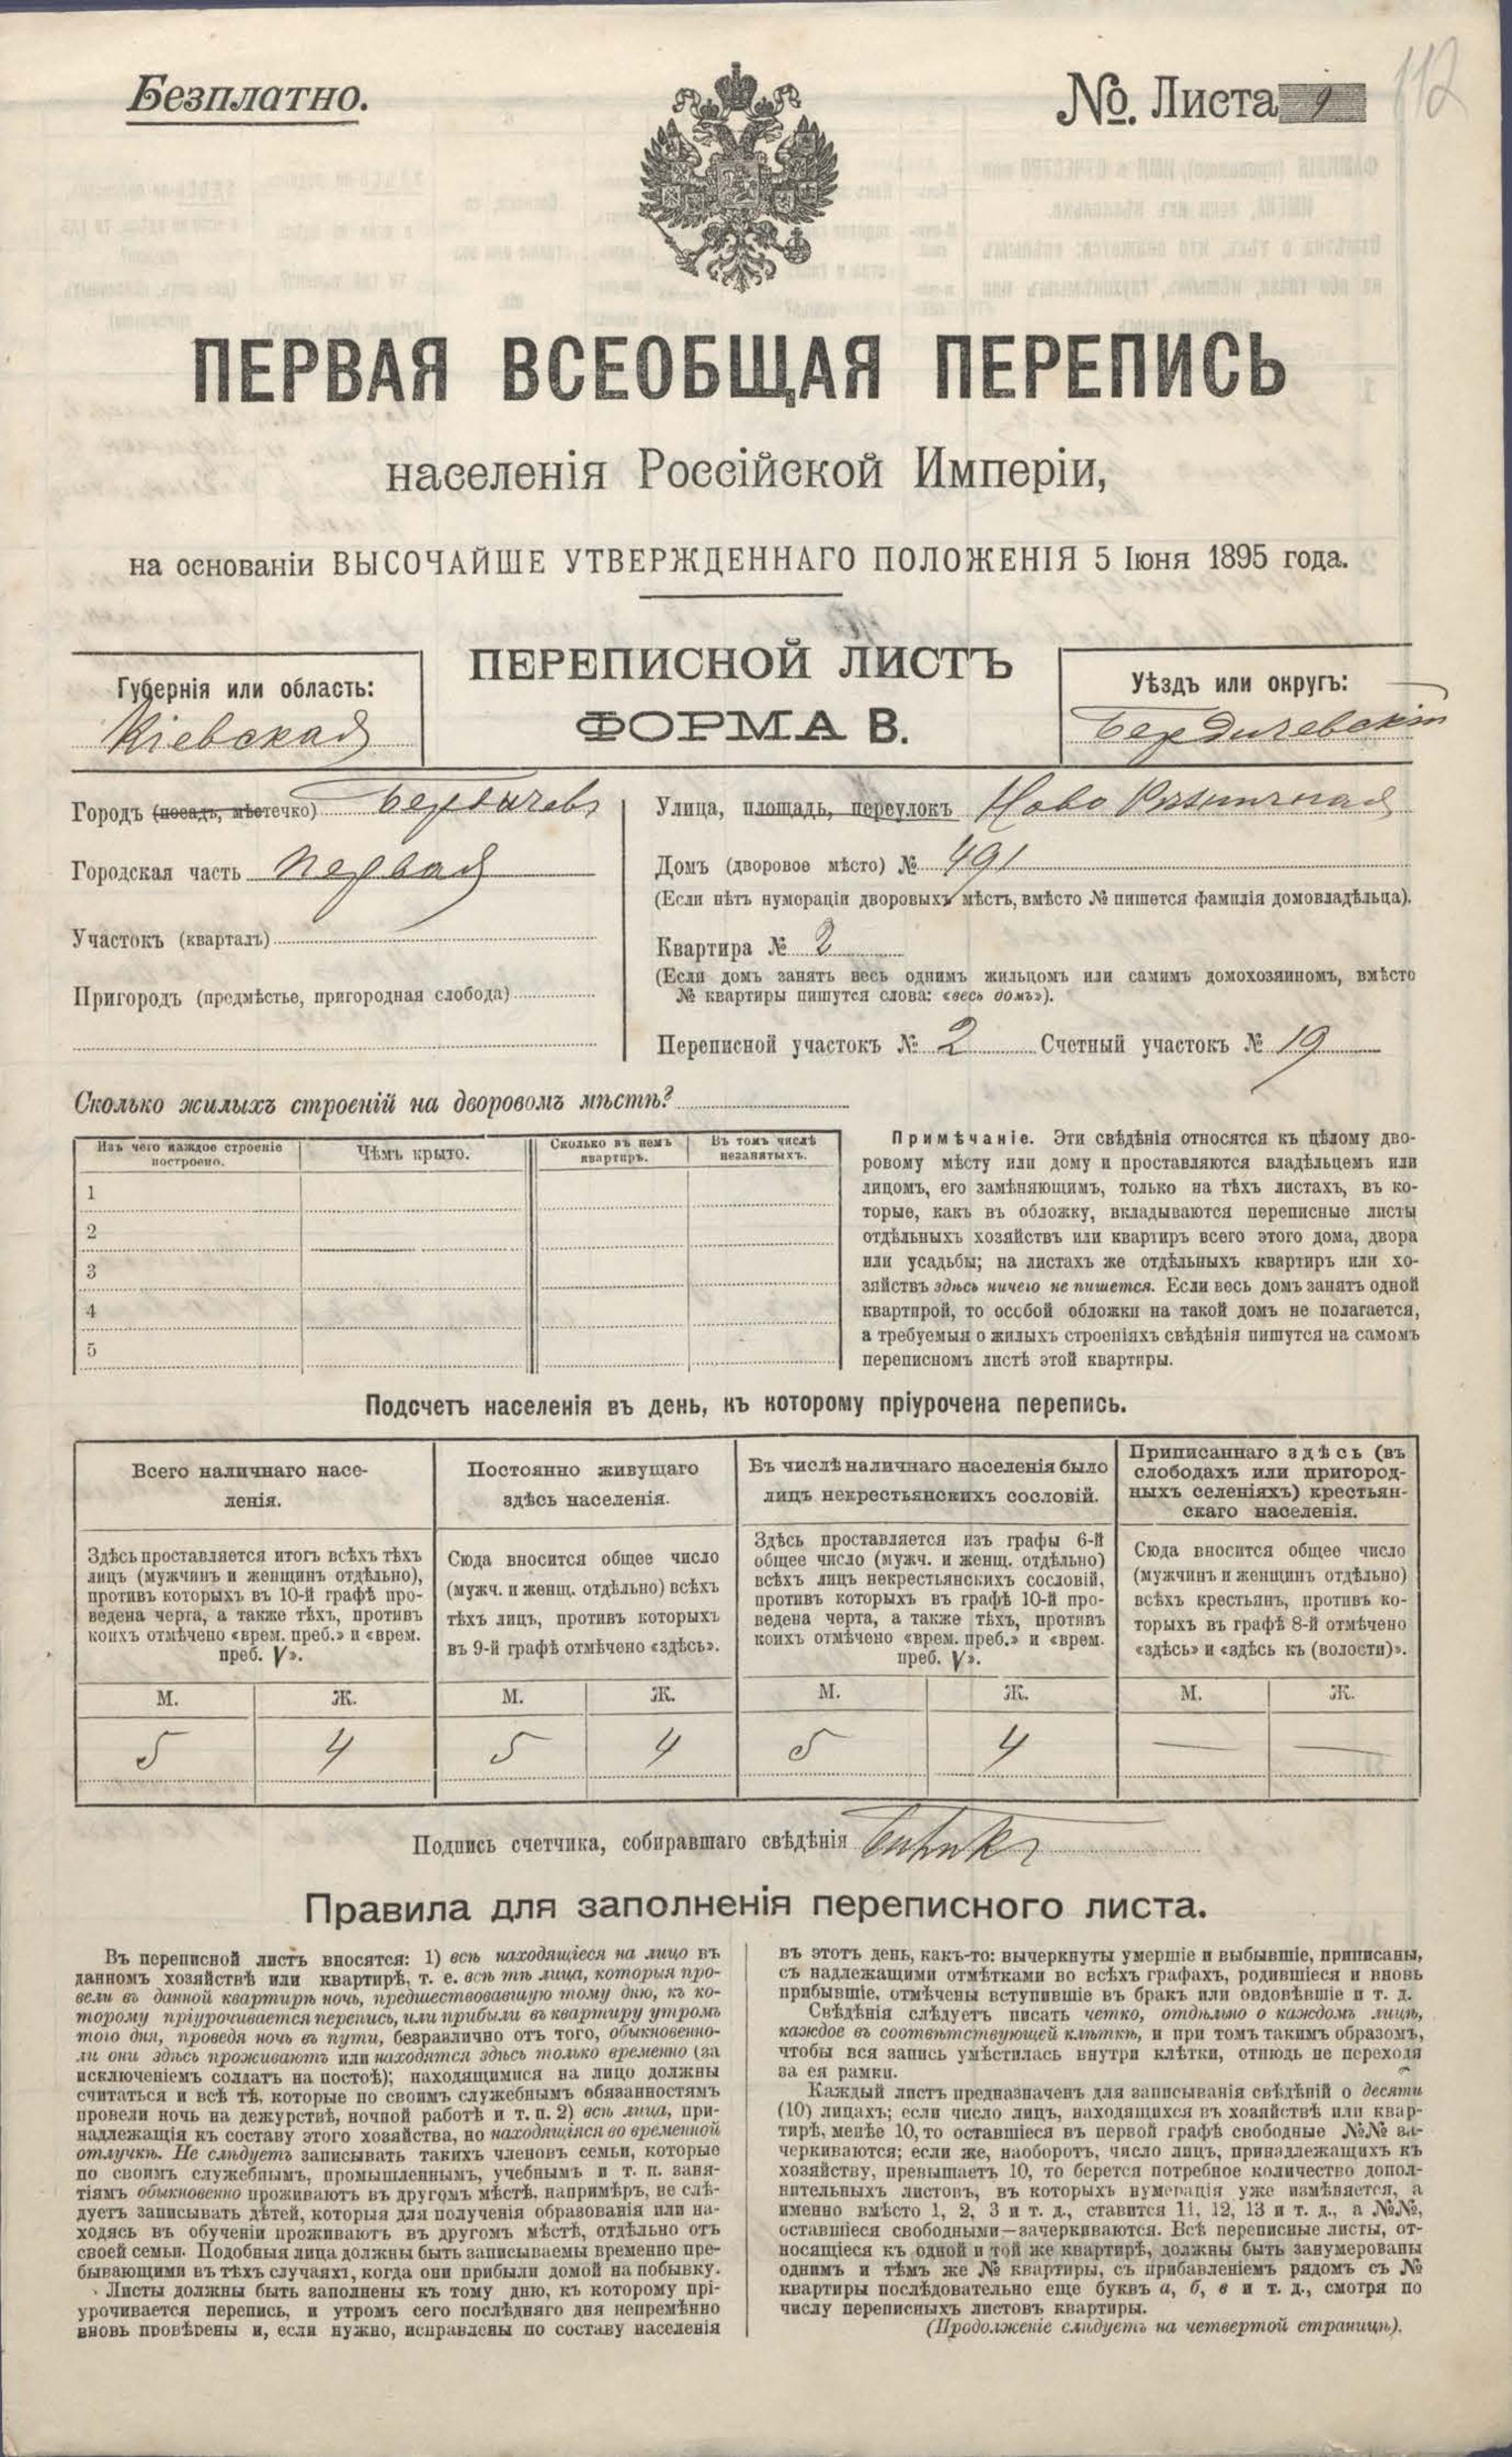 Безплатно.
№. Листа 9
112
ПЕРВАЯ ВСЕОБЩАЯ ПЕРЕПИСЬ
населенія Россійской Имперіи,
на основаніи ВЫСОЧАЙШЕ УТВЕРЖДЕННАГО ПОЛОЖЕНІЯ 5 Іюня 1895 года.
ПЕРЕПИСНОЙ ЛИСТЪ
ФОРМА В.
Губернія или область:
Кіевская
Уѣздъ или округъ:
Бердичевскій
Городъ (посадъ, мѣстечко) Бердичевъ
Городская часть первая
Участокъ (кварталъ)
Пригородъ (предмѣстье, пригородная слобода)
Улица, площадь, переулокъ Ново
Домъ (дворовое мѣсто) № 491
(Если нѣтъ нумераціи дворовыхъ мѣстъ, вмѣсто № пишется фамилія домовладѣльца).
Квартира № 2
(Если домъ занятъ весь однимъ жильцомъ или самимъ домохозяиномъ, вмѣсто
№ квартиры пишутся слова: «весь домъ»).
Переписной участокъ № 2 Счетный участокъ № 19
Сколько жилыхъ строеній на дворовомъ мѣстѣ?
Изъ чего каждое строеніе
построено.
Чѣмъ крыто.
Сколько въ немъ
квартиръ.
Въ томъ числѣ
незанятыхъ.
1
2
3
4
5
Примѣчаніе. Эти свѣдѣнія относятся къ цѣлому дво-
ровому мѣсту или дому и проставляются владѣльцемъ или
лицомъ, его замѣняющимъ, только на тѣхъ листахъ, въ ко-
торые, какъ въ обложку, вкладываются переписные листы
отдѣльныхъ хозяйствъ или квартиръ всего этого дома, двора
или усадьбы; на листахъ же отдѣльныхъ квартиръ или хо-
зяйствъ здѣсь ничего не пишется. Если весь домъ занятъ одной
квартирой, то особой обложки на такой домъ не полагается,
а требуемыя о жилыхъ строеніяхъ свѣдѣнія пишутся на самомъ
переписномъ листѣ этой квартиры.
Подсчетъ населенія въ день, къ которому пріурочена перепись.
Всего наличнаго насе-
ленія.
Постоянно живущаго
здѣсь населенія.
Въ числѣ наличнаго населенія было
лицъ некрестьянскихъ сословій.
Приписаннаго здѣсь (въ
слободахъ или пригород-
ныхъ селеніяхъ) крестьян-
скаго населенія.
Здѣсь проставляется итогъ всѣхъ тѣхъ
лицъ (мужчинъ и женщинъ отдѣльно),
противъ которыхъ въ 10-й графѣ про-
ведена черта, а также тѣхъ, противъ
коихъ отмѣчено «врем. преб.» и «врем.
преб. V».
Сюда вносится общее число
(мужч. и женщ. отдѣльно) всѣхъ
тѣхъ лицъ, противъ которыхъ
въ 9-й графѣ отмѣчено «здѣсь».
Здѣсь проставляется изъ графы 6-й
общее число (мужч. и женщ. отдѣльно)
всѣхъ лицъ некрестьянскихъ сословій,
противъ которыхъ въ графѣ 10-й про-
ведена черта, а также тѣхъ, противъ
коихъ отмѣчено «врем. преб.» и «врем.
преб. V».
Сюда вносится общее число
(мужчинъ и женщинъ отдѣльно)
всѣхъ крестьянъ, противъ ко-
торыхъ въ графѣ 8-й отмѣчено
«здѣсь» и «здѣсь къ (волости)».
М. Ж. М. Ж. М. Ж. М. Ж.
5 4 5 4 5 4 — —
Подпись счетчика, собиравшаго свѣдѣнія
Правила для заполненія переписного листа.
Въ переписной листъ вносятся: 1) всѣ находящіеся на лицо въ
данномъ хозяйствѣ или квартирѣ, т. е. всѣ тѣ лица, которыя про-
вели въ данной квартирѣ ночь, предшествовавшую тому дню, къ ко-
торому пріурочивается перепись, или прибыли въ квартиру утромъ
того дня, проведя ночь въ пути, безразлично отъ того, обыкновенно-
ли они здѣсь проживаютъ или находятся здѣсь только временно (за
исключеніемъ солдатъ на постоѣ); находящимися на лицо должны
считаться и всѣ тѣ, которые по своимъ служебнымъ обязанностямъ
провели ночь на дежурствѣ, ночной работѣ и т. п. 2) всѣ лица, при-
надлежащія къ составу этого хозяйства, но находящіяся во временной
отлучкѣ. Не слѣдуетъ записывать такихъ членовъ семьи, которые
по своимъ служебнымъ, промышленнымъ, учебнымъ и т. п. заня-
тіямъ обыкновенно проживаютъ въ другомъ мѣстѣ, напримѣръ, не слѣ-
дуетъ записывать дѣтей, которыя для полученія образованія или на-
ходясь въ обученіи проживаютъ въ другомъ мѣстѣ, отдѣльно отъ
своей семьи. Подобныя лица должны быть записываемы временно пре-
бывающими въ тѣхъ случаяхъ, когда они прибыли домой на побывку.
Листы должны быть заполнены къ тому дню, къ которому прі-
урочивается перепись, и утромъ сего послѣдняго дня непремѣнно
вновь провѣрены и, если нужно, исправлены по составу населенія
въ этотъ день, какъ-то: вычеркнуты умершіе и выбывшіе, приписаны,
съ надлежащими отмѣтками во всѣхъ графахъ, родившіеся и вновь
прибывшіе, отмѣчены вступившіе въ бракъ или овдовѣвшіе и т. д.
Свѣдѣнія слѣдуетъ писать четко, отдѣльно о каждомъ лицѣ,
каждое въ соотвѣтствующей клѣткѣ, и при томъ такимъ образомъ,
чтобы вся запись умѣстилась внутри клѣтки, отнюдь не переходя
за ея рамки.
Каждый листъ предназначенъ для записыванія свѣдѣній о десяти
(10) лицахъ; если число лицъ, находящихся въ хозяйствѣ или квар-
тирѣ, менѣе 10, то оставшіеся въ первой графѣ свободные №№ за-
черкиваются; если же, наоборотъ, число лицъ, принадлежащихъ къ
хозяйству, превышаетъ 10, то берется потребное количество допол-
нительныхъ листовъ, въ которыхъ нумерація уже измѣняется, а
именно вмѣсто 1, 2, 3 и т. д., ставится 11, 12, 13 и т. д., а №№,
оставшіеся свободными—зачеркиваются. Всѣ переписные листы, от-
носящіеся къ одной и той же квартирѣ, должны быть занумерованы
однимъ и тѣмъ же № квартиры, съ прибавленіемъ рядомъ съ №
квартиры послѣдовательно еще буквъ а, б, в и т. д., смотря по
числу переписныхъ листовъ квартиры.
(Продолженіе слѣдуетъ на четвертой страницѣ).